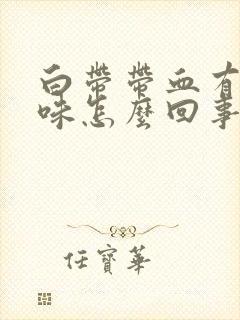 白带带血有
味怎麼回事
任寶華